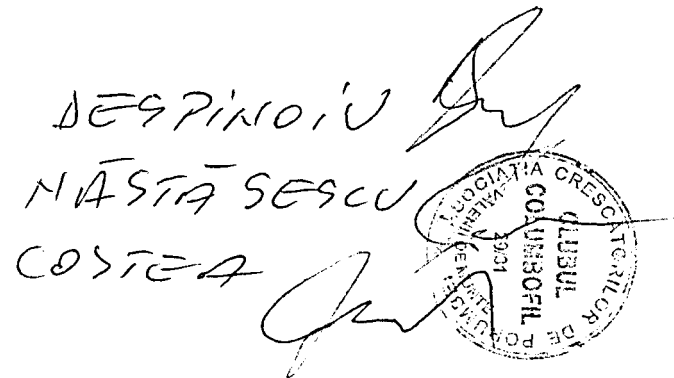 DESPINOIU
NĂSTĂSESCU
COSTEA
ASOCIAȚIA CRESCATORILOR DE PORUMBEI
VALENII DE MUNTE
CLUBUL
COLUMBOFIL
2931